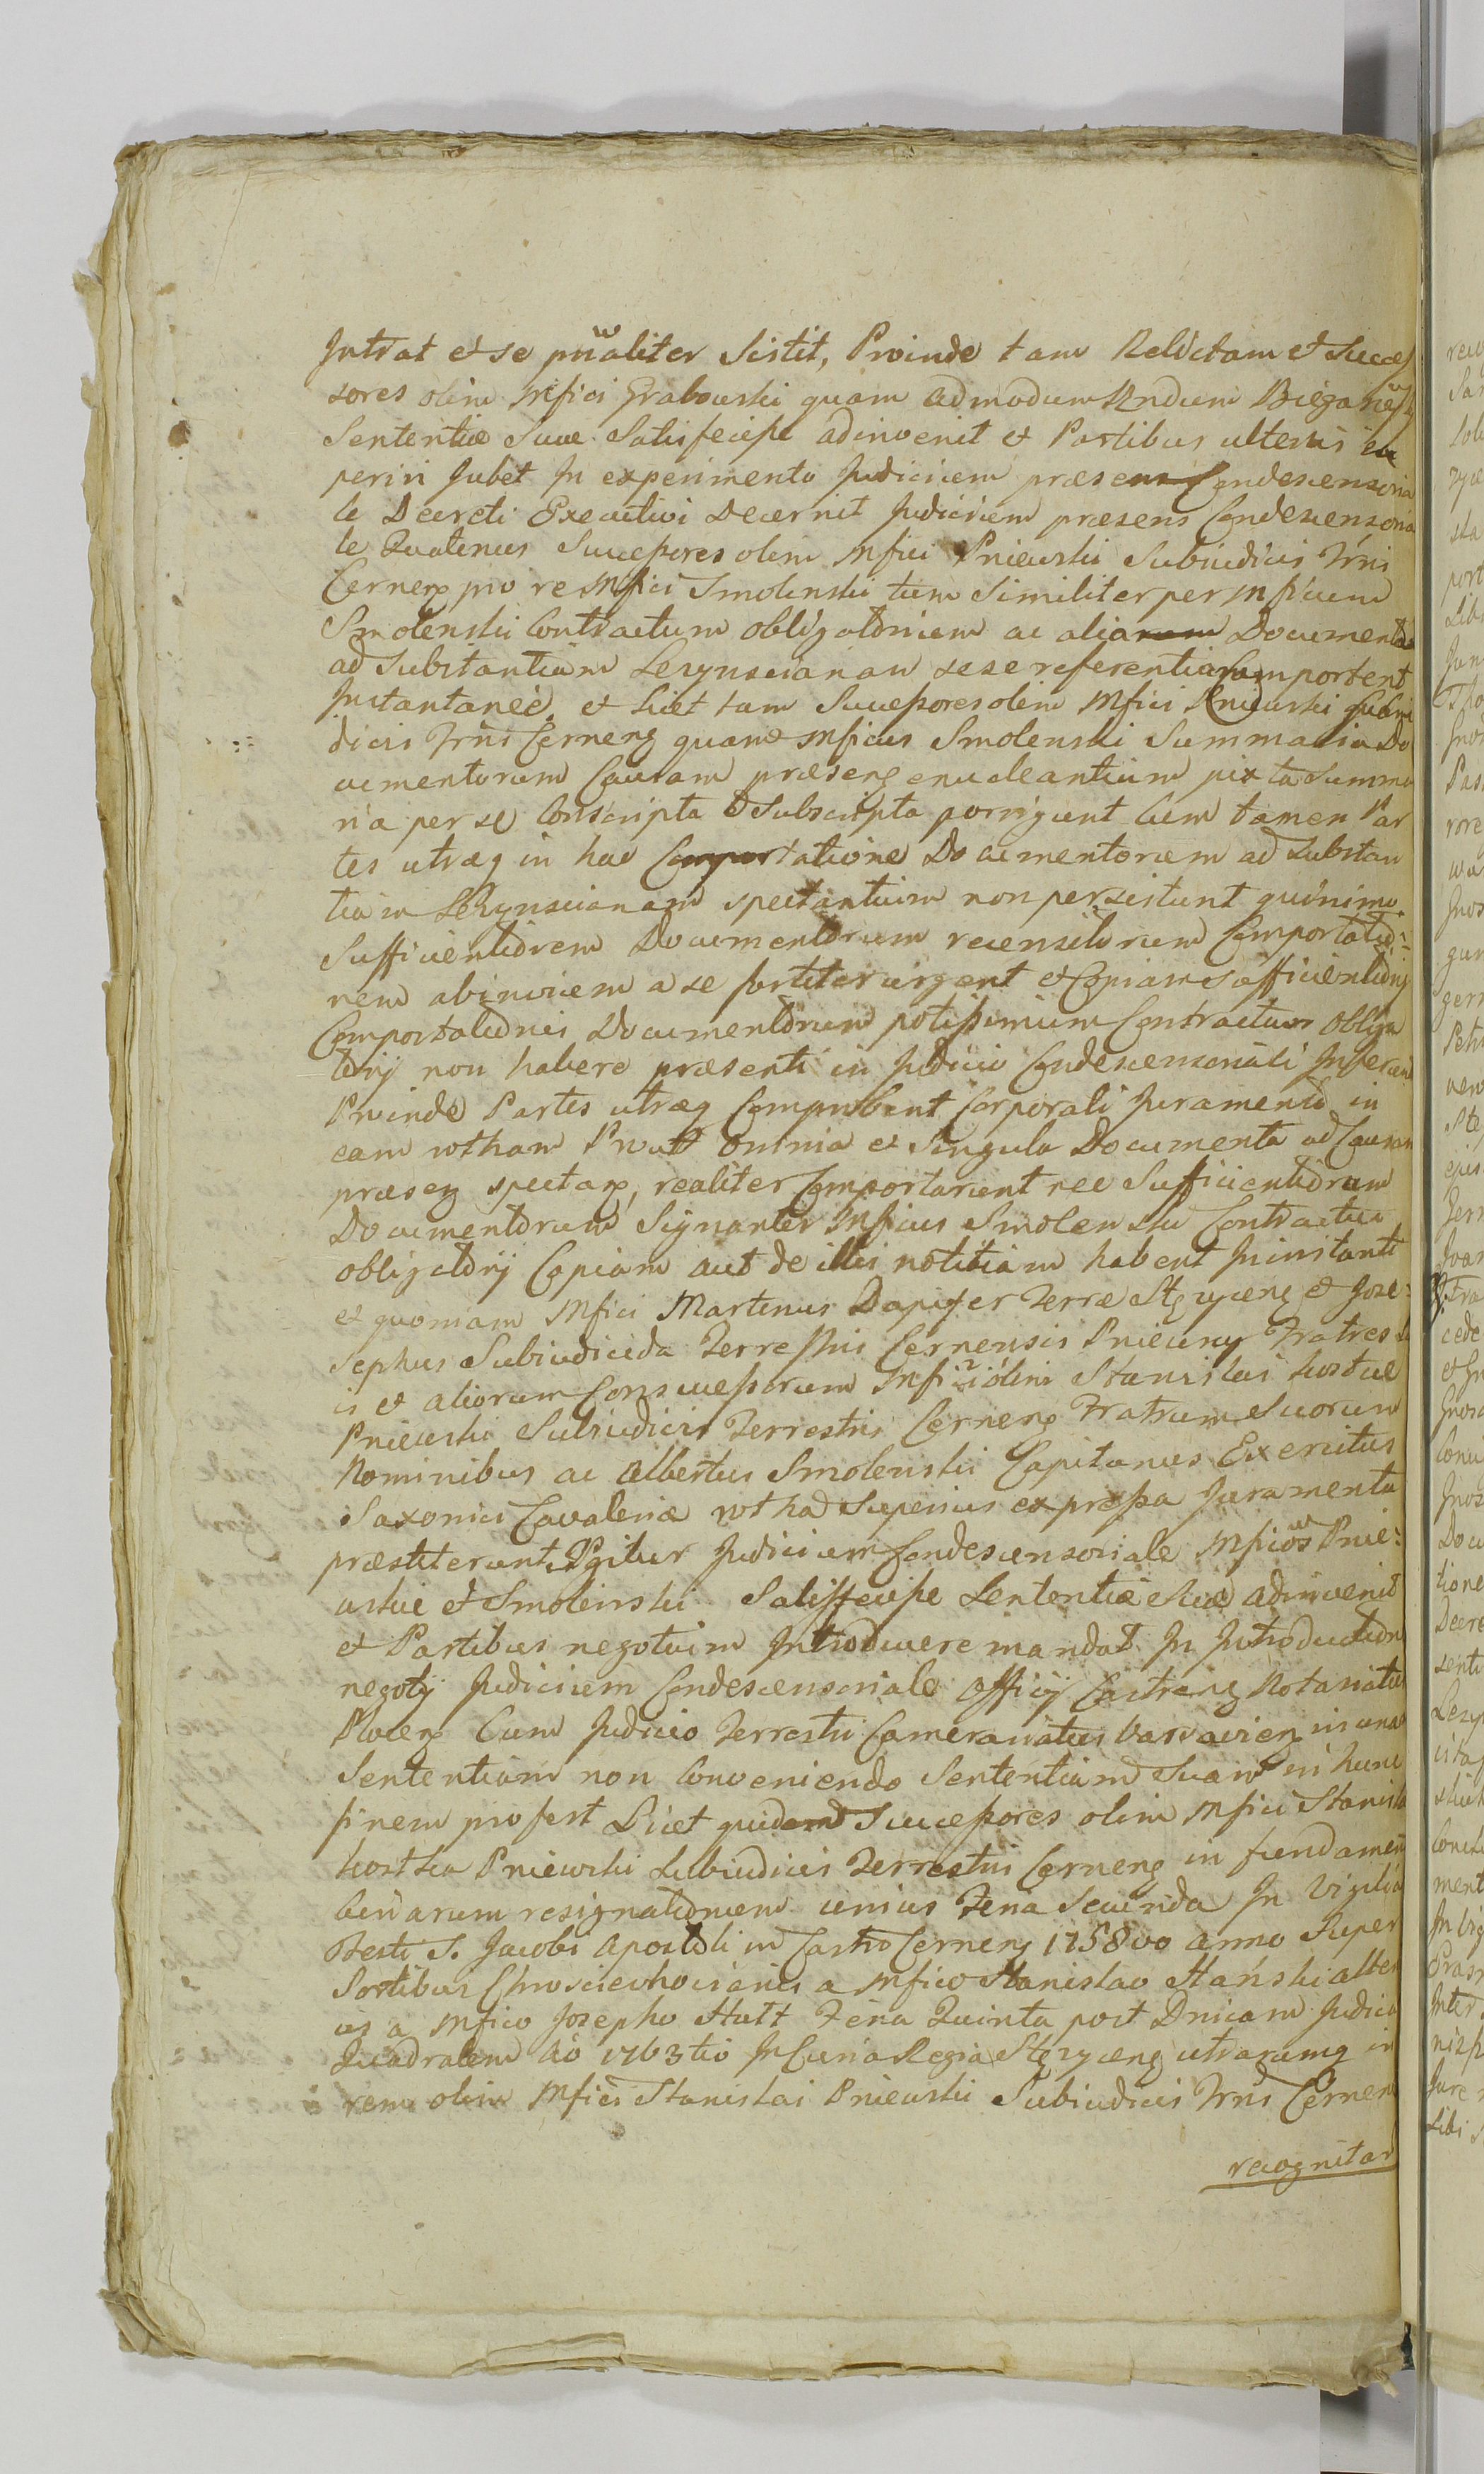 Intrat et se pnnaliter Sistit, Proinde tam Relictam et Succes
sores olim Mfici Grabowski quam admodum Rndum Biegański
Sententiæ Suæ Satisfecisse adinvenit et Partibus ulterius ex
periri Jubet In experimento Judicium præsens Condescensoria
le Decreti Executivi Decernit Judicium præsens Condescensoria
le Quatenus Successores olim Mfici Pniewski Subiudicis Trris
Cernen pro re Mfici Smolenski tum Similiter per Mficum
Smolenski Contractum obligatorium ac alia Documenta
ad Substantiam Lesznscianam sese referentia Comportent
Instantanee, et Licet tam Successores olim Mfici Pniewski Subiu
dicis Trris Cernen quam Mficus Smolenski Summaria Do
cumentorum Causam præsen enucleantium juxta Summa
ria per se Conscripta et Subscripta porrigunt Cum tamen Par
tes utræq in hac Comportatione Documentorum ad Substan
tiam Lesznscianam spectantium non persistunt quinimo
Sufficientiorem Documentorum recensitorum Comportatio-
nem abinvicem a se fortiter urgent et Copiam Sufficientioris
Comportationis Documentorum potissimum Contractus Obliga
torij non habere præsenti in Judicio Condescensoriali Inferunt
Proinde Partes utræq Comprobent Corporali Juramento in
eam rotham Prout omnia et Singula Documenta ad Causam
præsen spectan, realiter Comportarunt nec Sufficientiorum
Documentorum Signanter Mficus Smolenski Contractus
obligatorij Copiam aut de illis notitiam habent Ininstanti
et quoniam Mfici Martinus Dapifer Terræ Stęzycen et Joze-
sephus Subiudicida Terrestris Cernensis Pniewscy Fratres su
is et aliorum Consuccessorum Mfici olim Stanislai Kostwe
Pniewski Subiudicis Terrestris Cernen Fratrum Suorum
Nominibus ac Albertus Smolenski Capitaneus Exercitus
Saxonici Cavaleriæ rotha Superius expressa Juramenta
præstiterunt. Igitur Judicium Condescensoriale Mficos Pnie-
wskie et Smolenski Satisfecisse Sententiæ Suæ adinvenit
et Partibus negotium Introducere mandat. In Introductione
negotij Judicium Condescensoriale Officij Castren Notariatus
Plocen Cum Judicio Terrestri Camerariatus Varsavien in una
Sententiam non Conveniendo Sententiam Suam in hunc
finem profert Licet quidem Successores olim Mfici Stanislai
Kostka Pniewski Subiudicis Terrestris Cernen in fundamen
binarum resignationem unius Feria Secunda In Vigilia
Festi S. Jacobi Apostoli in Castro Cernen 1758vo anno Super
Sortibus Chrosciechocianis a Mfico Stanislao Stański alter
ius a Mfico Josepho Statt Feria Quinta post Dnicam Judica
Quadralem Ao 1763tio In Curia Regia Stęzycen utrarumq in
rem olim Mfici Stanislai Pniewski Subiudicis Trris Cernen
recognitar